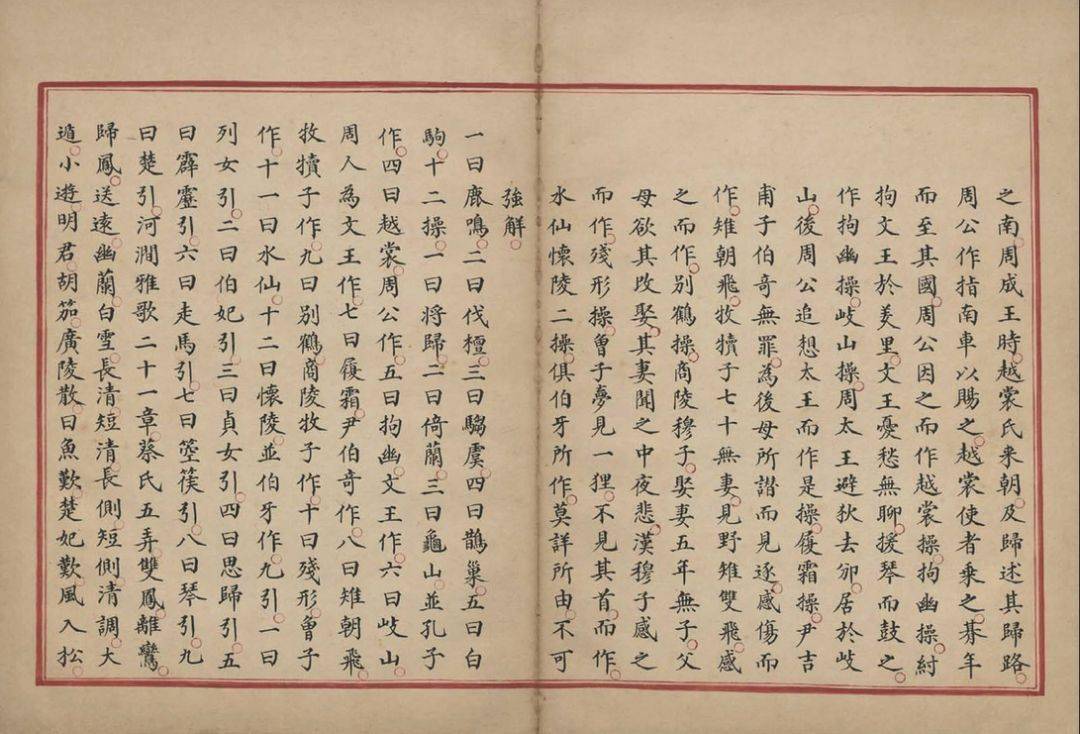 之南周成王時越裳氏来朝及歸述其歸路
周公作指南車以賜之越裳使者乗之朞年
而至其國周公因之而作越裳操拘幽操紂
拘文王於羑里文王憂愁無聊援琴而鼓之
作拘幽操岐山操周太王避狄去邠居於岐
山後周公追想太王而作是操履霜操尹吉
甫子伯奇無罪為後母所譖而見逐感傷而
作雉朝飛牧犢子七十無妻見野雉雙飛感
之而作别鶴操商陵穆子娶妻五年無子父
母欲其改娶其妻聞之中夜悲漢穆子感之
而作殘形操曾子夢見一狸不見其首而作
水仙懷陵二操俱伯牙所作莫詳所由不可
強解
一曰鹿鳴二曰伐檀三曰騶虞四曰鵲巢五曰白
駒十二操一曰将歸二曰倚蘭三曰龜山並孔子
作四曰越裳周公作五曰拘幽文王作六曰岐山
周人為文王作七曰履霜尹伯奇作八曰雉朝飛
牧犢子作九曰别鶴商陵牧子作十曰殘形曾子
作十一曰水仙十二曰懷陵並伯牙作九引一曰
列女引二曰伯妃引三曰貞女引四曰思歸引五
曰霹靂引六曰走馬引七曰箜篌引八曰琴引九
曰楚引河澗雅歌二十一章蔡氏五弄雙鳳離鸞
歸鳳送遠幽蘭白雪長清短清長側短側清調大
遊小遊明君胡笳廣陵散曰魚歎楚妃歎風入松